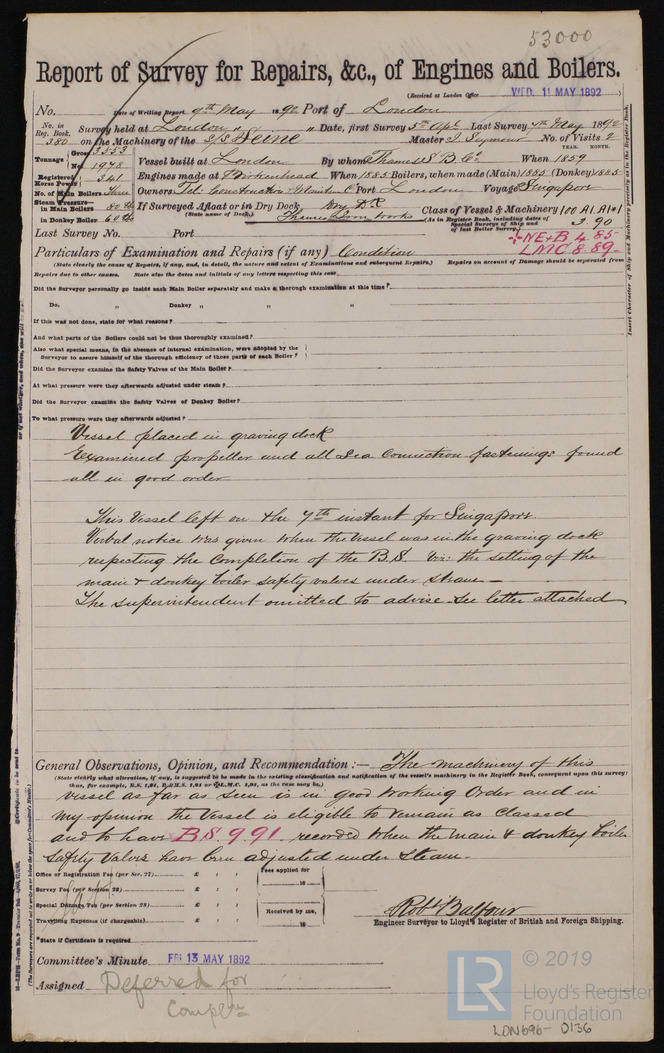 53000
Report of Survey for Repairs, &c., of Engines and Boilers.
(Received at London Office WED. 11 MAY 1892
No. Date of Writing Report 9th May 1892 Port of London
No. in Reg. Book. 380 Survey held at London Date, first Survey 5th Apl Last Survey 7th May 1892
on the Machinery of the S/S Master J. Seymour No. of Visits 2
YEAR. MONTH.
Tonnage Gross 3553 Net 1978 Vessel built at London By whom Thames S. B. Co. When 1859
Registered Horse Power 341 Engines made at Birkenhead When 1885 Boilers, when made (Main) 1885 (Donkey) 1885
No. of Main Boilers Three Owners Tel. Construction & Co Port London Voyage Singapore
Steam Pressure in Main Boilers 80 lb If Surveyed Afloat or in Dry Dock Dry Dk Class of Vessel & Machinery 100 A1
in Donkey Boiler 60 lb (State name of Dock.) Thames Iron works (As in Register Book, including dates of Special Surveys of Ship and of last Boiler Survey.) 3.90
Last Survey No. Port NE+B 4.85
LMC 8.89
Particulars of Examination and Repairs (if any) Condition
(State clearly the cause of Repairs, if any, and, in detail, the nature and extent of Examinations and subsequent Repairs.) Repairs on account of Damage should be separated from
Repairs due to other causes. State also the dates and initials of any letters respecting this case.
Did the Surveyor personally go inside each Main Boiler separately and make a thorough examination at this time?
Do. „ Donkey „ „ „
If this was not done, state for what reasons?
And what parts of the Boilers could not be thus thoroughly examined?
Also what special means, in the absence of internal examination, were adopted by the
Surveyor to assure himself of the thorough efficiency of those parts of each Boiler?
Did the Surveyor examine the Safety Valves of the Main Boiler?
At what pressure were they afterwards adjusted under steam?
Did the Surveyor examine the Safety Valves of Donkey Boiler?
To what pressure were they afterwards adjusted?
Vessel placed in graving dock
Examined propeller and all Sea Connection fastenings found
all in good order
This Vessel left on the 7th instant for Singapore.
Verbal notice was given when the Vessel was in the graving dock
respecting the Completion of the B.S. viz: the setting of the
main & donkey boiler safety valves under steam —
The superintendent omitted to advise see letter attached
General Observations, Opinion, and Recommendation:— The machinery of this
(State clearly what alteration, if any, is suggested to be made in the existing classification and notification of the vessel's machinery in the Register Book, consequent upon this survey:
thus, for example, B.S. 1,91, B.&M.S. 1,91 or L.M.C. 1,91, as the case may be.)
vessel as far as seen is in good working order and in
my opinion the Vessel is eligible to remain as Classed
and to have BS 9.91 recorded when the main & donkey boiler
Safety Valves have been adjusted under Steam.
Office or Registration Fee (per Sec. 27) £ : : Fees applied for
Survey Fee (per Section 28) £ : : 18
Special Damage Fee (per Section 28) £ : : Received by me,
Travelling Expenses (if chargeable) £ : : 18
Robt Balfour
Engineer Surveyor to Lloyd's Register of British and Foreign Shipping.
*State if Certificate is required
Committee's Minute FRI 13 MAY 1892
Assigned Deferred for
LR
© 2019
Lloyd's Register
Foundation
LDN696-0136
Insert Character of Ship and Machinery precisely as in the Register Book.